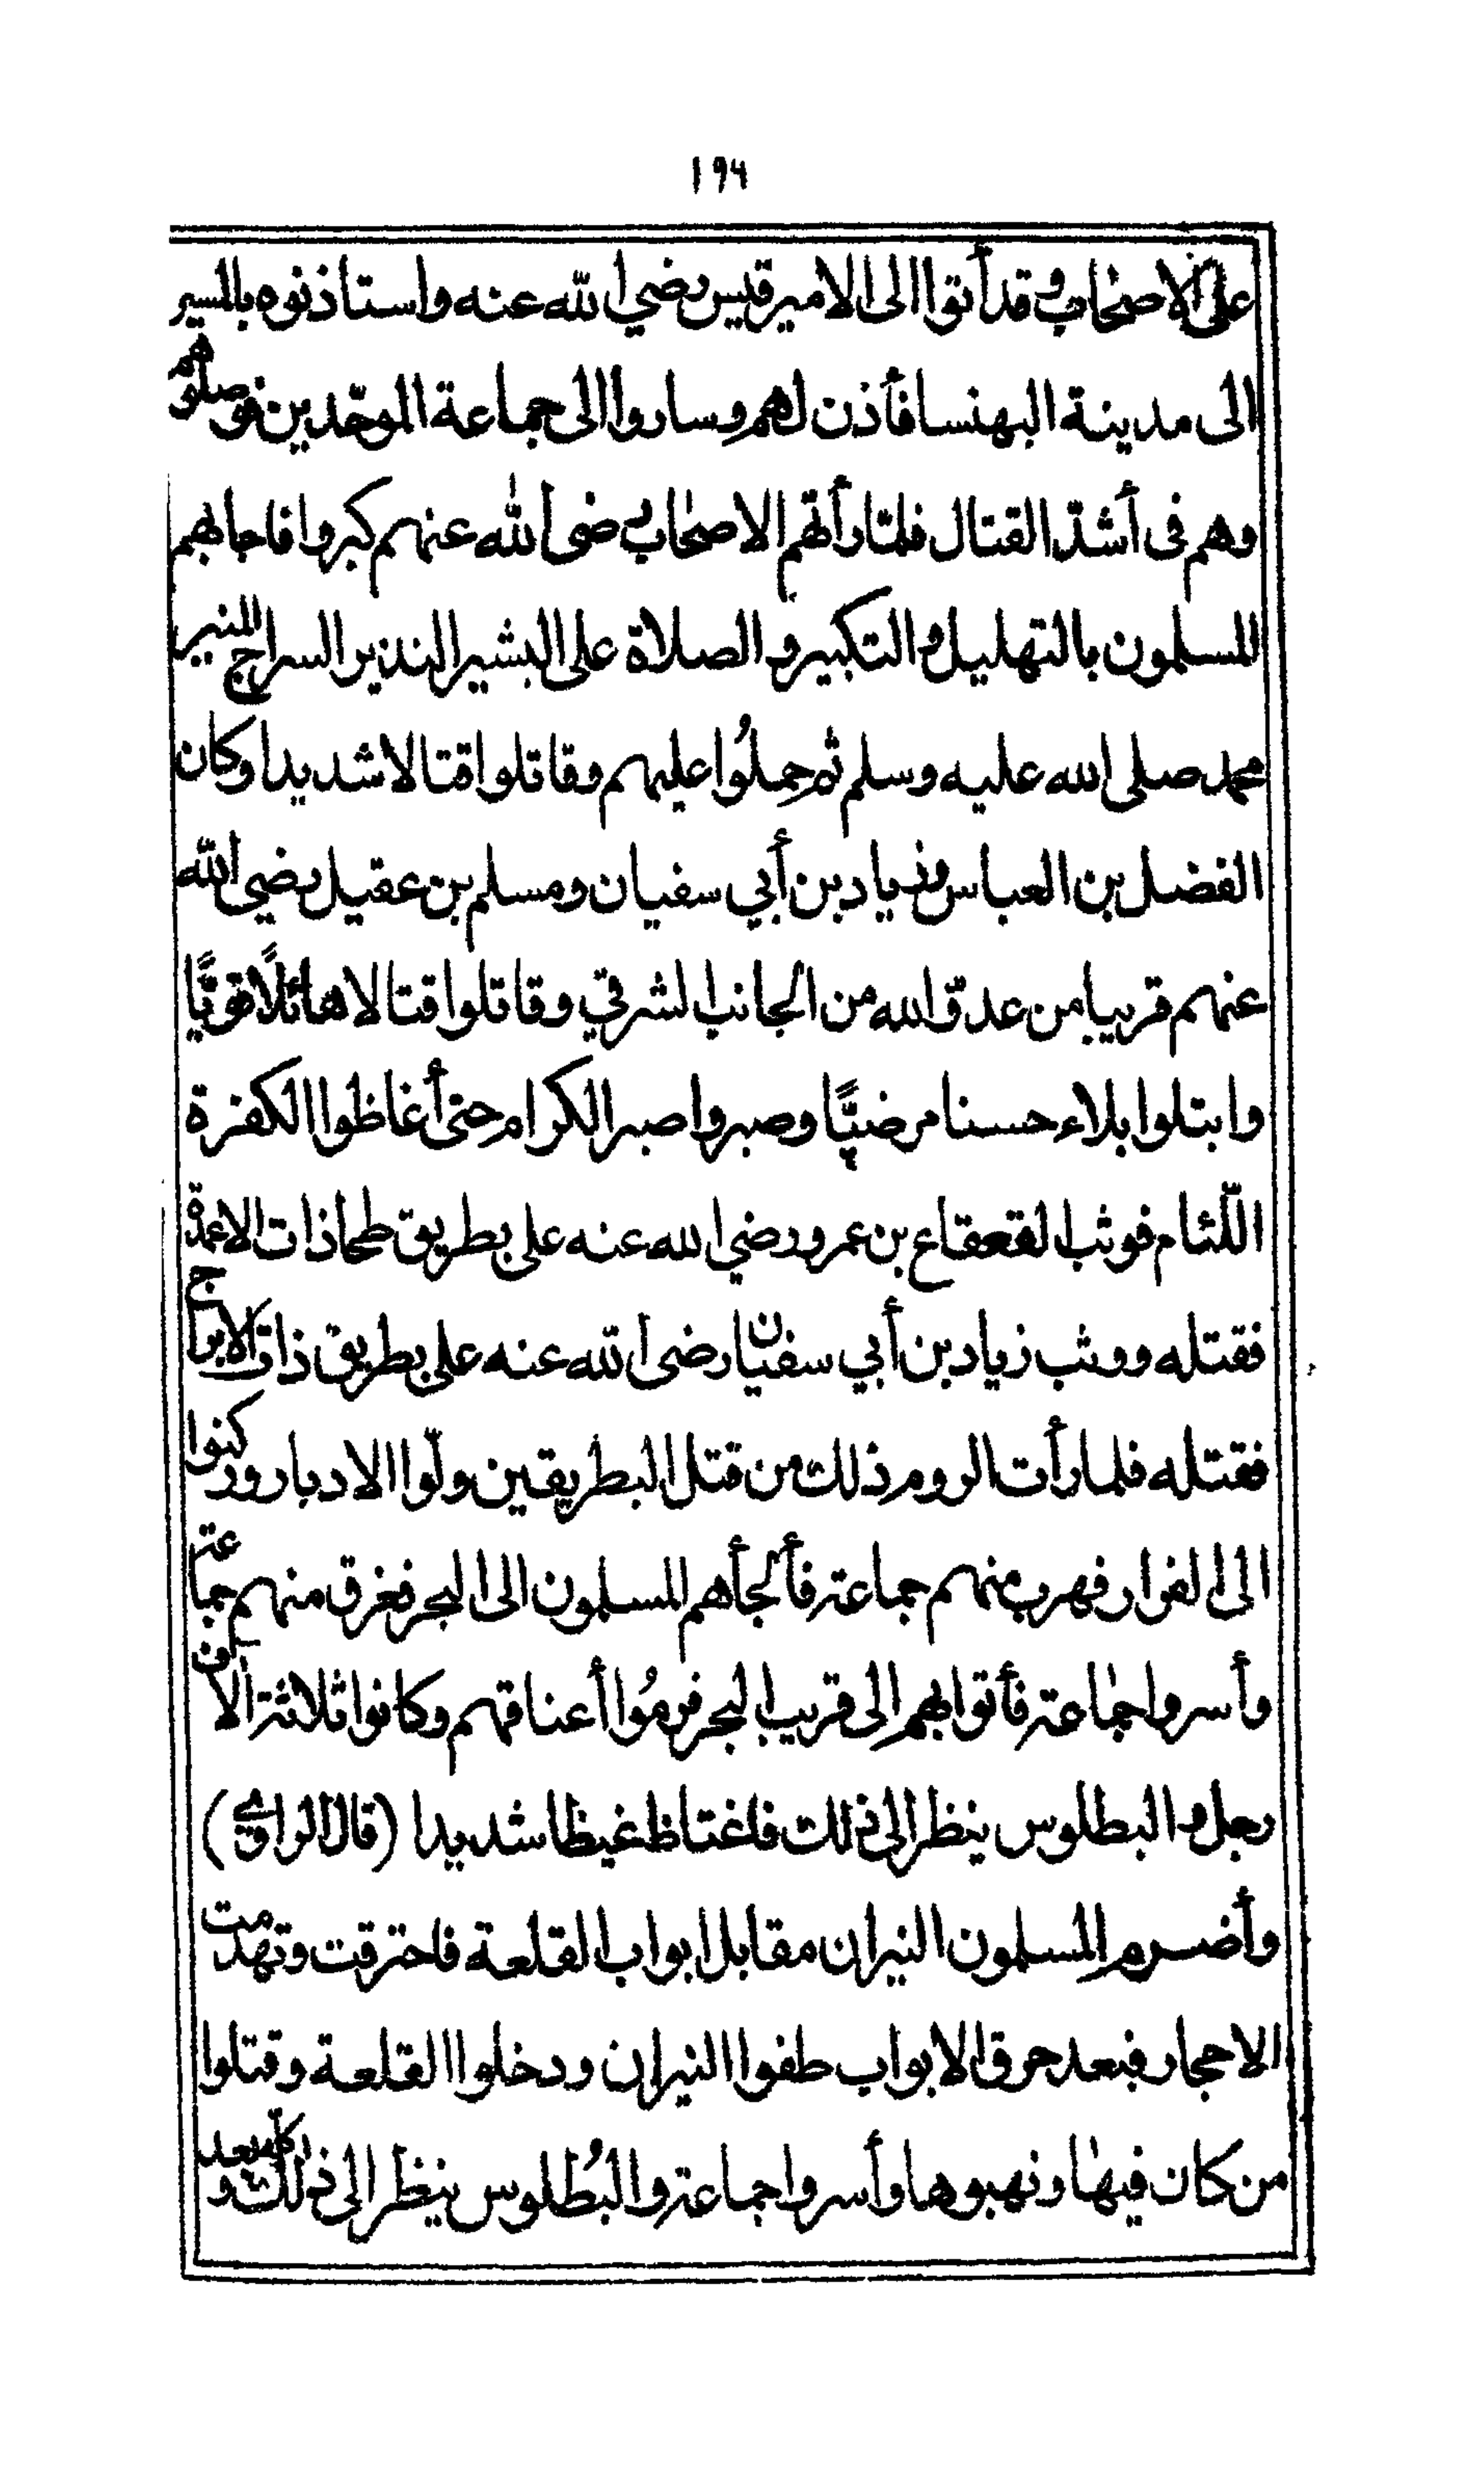 ١٩٤
على الاصحاب وقد أتوا الى الامير قيس رضي الله عنه واستاذنوه بالمسير
الى مدينة البهنسا فأذن لهم وساروا الى جماعة الموحّدين فوصلوهم
وهم فى أشدّ القتال فلمّا رأتهم الاصحاب رضى الله عنهم كبروا فاجابهم
المسلمون بالتهليل والتكبير والصلاة على البشير النذير السراج المنير
محمد صلى الله عليه وسلم ثم حملُوا عليهم وقاتلوا قتالا شديدا وكان
الفضل بن العباس وزياد بن أبي سفيان ومسلم بن عقيل رضي الله
عنهم قريبا من عدوّ الله من الجانب الشرقي وقاتلوا قتالا هائلًا قويًّا
وابتلوا بلاء حسنا مرضيًّا وصبروا صبر الكرام حتى أغاظوا الكفرة
اللّئام فوثب القعقاع بن عمرو رضي الله عنه على بطريق طحا ذات الاعمدة
فقتله ووثب زياد بن أبي سفيان رضى الله عنه على بطريق ذات الابراج
فقتله فلما رأت الروم ذلك من قتل البطريقين ولّوا الادبار وركنوا
الى الفرار فهرب منهم جماعة فألجأهم المسلمون الى البحر فغرق منهم جماعة
وأسروا جماعة فأتوا بهم الى قريب البحر فرمُوا أعناقهم وكانوا ثلاثة آلاف
رجل والبطلوس ينظر الى ذلك فاغتاظ غيظا شديدا (قال الراوى)
وأضرم المسلمون النيران مقابل ابواب القلعة فاحترقت وتهدمت
الاحجار فبعد حرق الابواب طفوا النيران ودخلوا القلعة وقتلوا
من كان فيها ونهبوها وأسروا جماعة والبُطلوس ينظر الى ذلك كلّه وبعد